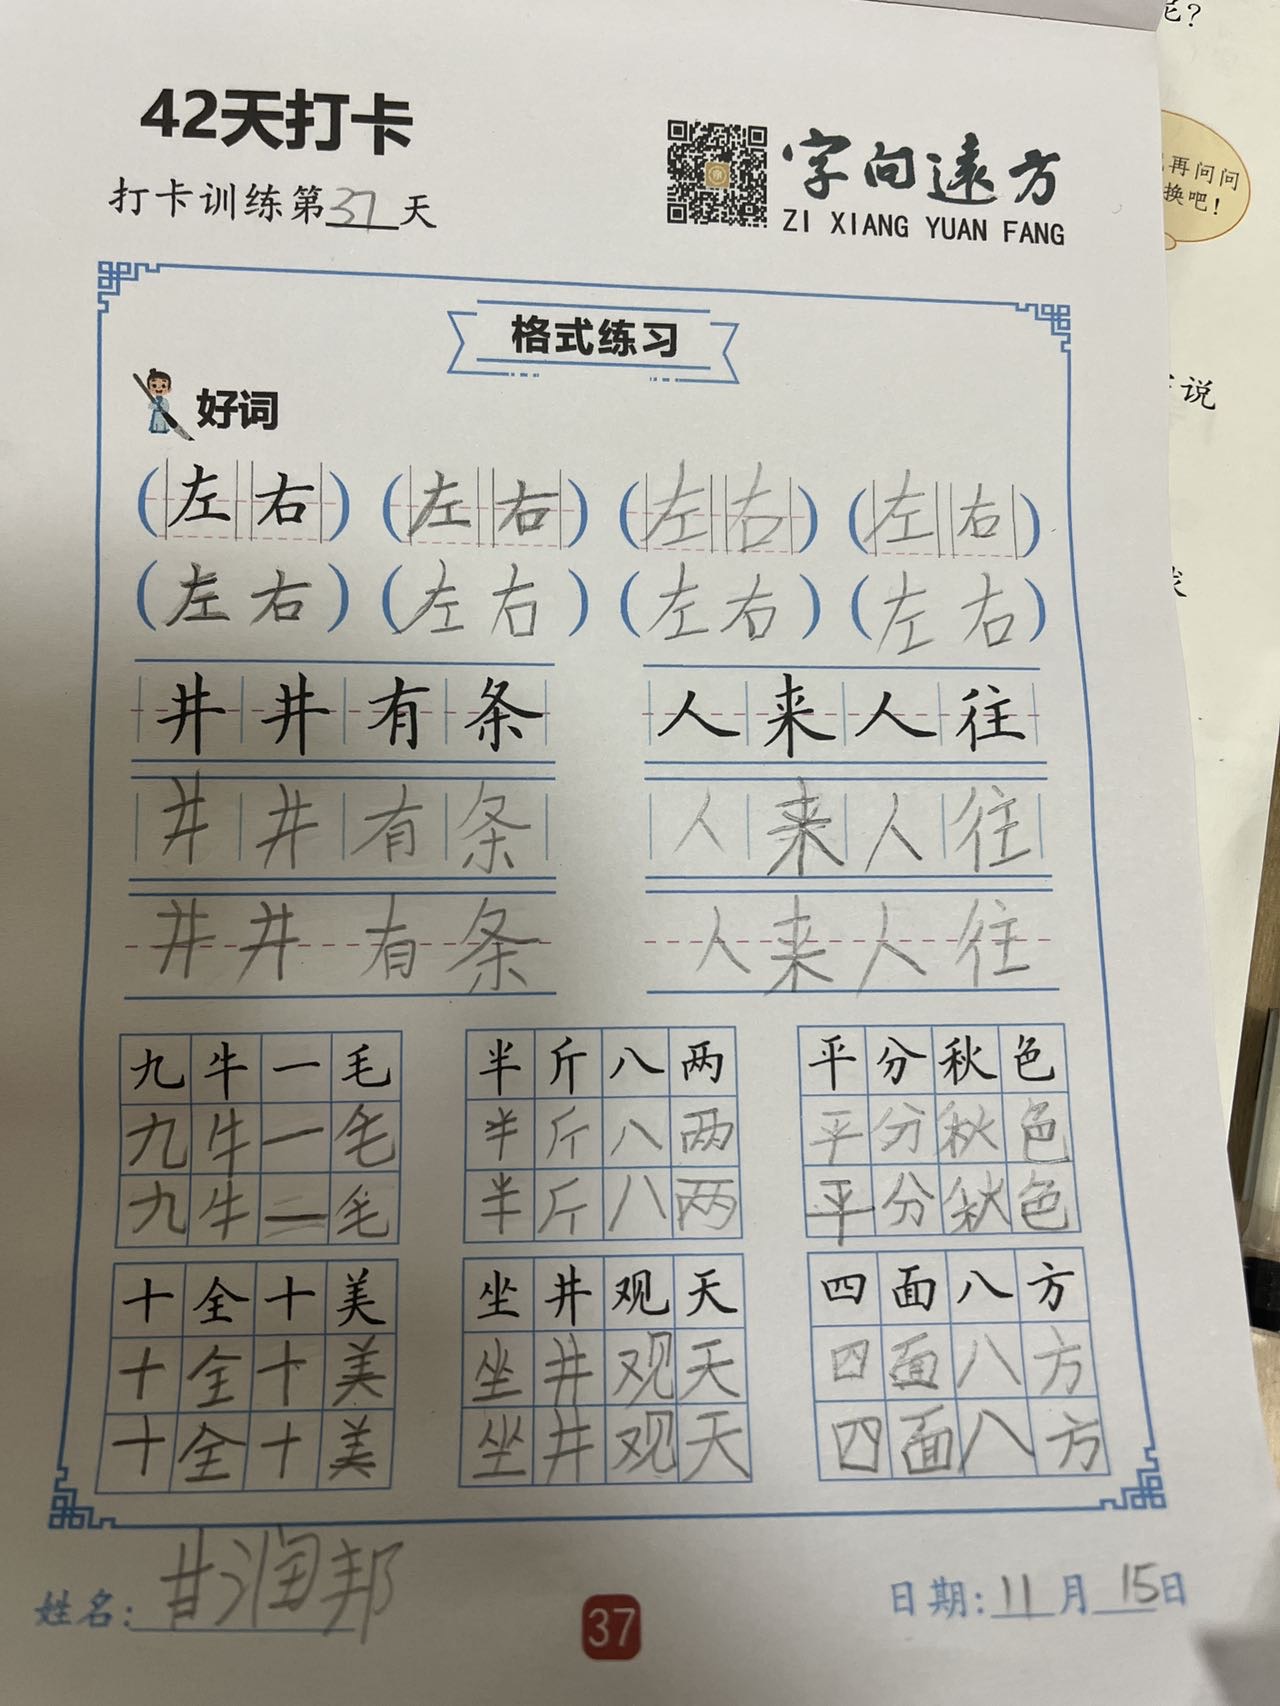 42天打卡
打卡训练第37天
字向远方
ZI XIANG YUAN FANG
呢?
再问问
换吧!
说
格式练习
好词
(左右) (左右) (左右) (左右)
(左右) (左右) (左右) (左右)
井井有条 人来人往
井井有条 人来人往
井井有条 人来人往
九牛一毛 半斤八两 平分秋色
九牛一毛 半斤八两 平分秋色
九牛一毛 半斤八两 平分秋色
十全十美 坐井观天 四面八方
十全十美 坐井观天 四面八方
十全十美 坐井观天 四面八方
姓名:甘润邦
37
日期:11月15日